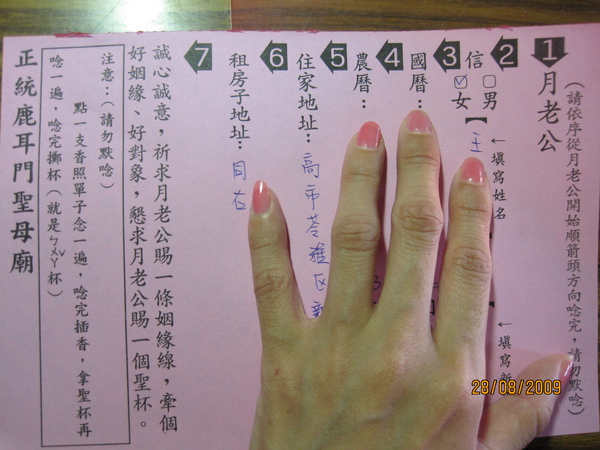 （請依序從月老公開始順箭頭方向唸完，請勿默唸）
1 月老公
←填寫姓名
←填寫
2 □男【王
3 信☑女
4 國曆：
5 農曆：
6 住家地址：高市苓雅區
7 租房子地址：同右
誠心誠意，祈求月老公賜一條姻緣線，牽個
好姻緣、好對象，懇求月老公賜一個聖杯。
注意：（請勿默唸）
點一支香照單子念一遍，唸完插香，拿聖杯再
唸一遍，唸完擲杯（就是ㄅㄨㄚˇ杯）
正統鹿耳門聖母廟
28/08/2009